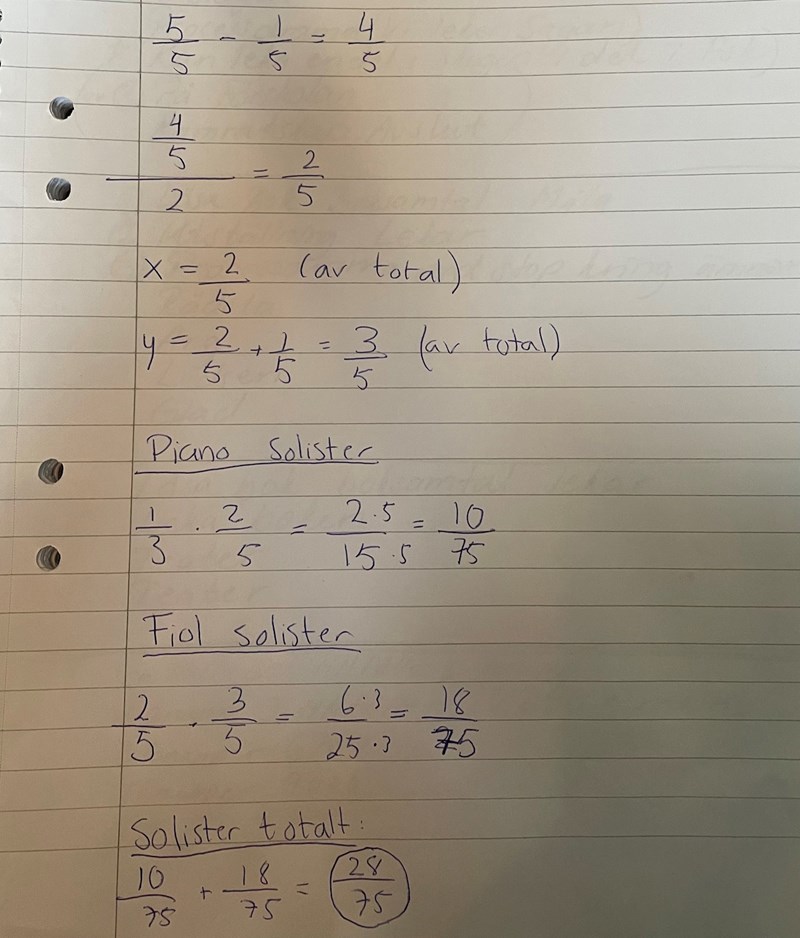 5/5 - 1/5 = 4/5
(4/5)/2 = 2/5
x = 2/5 (av total)
y = 2/5 + 1/5 = 3/5 (av total)
Piano Solister
1/3 · 2/5 = 2·5/15·5 = 10/75
Fiol solister
2/5 · 3/5 = 6·3/25·3 = 18/75
Solister totalt:
10/75 + 18/75 = 28/75